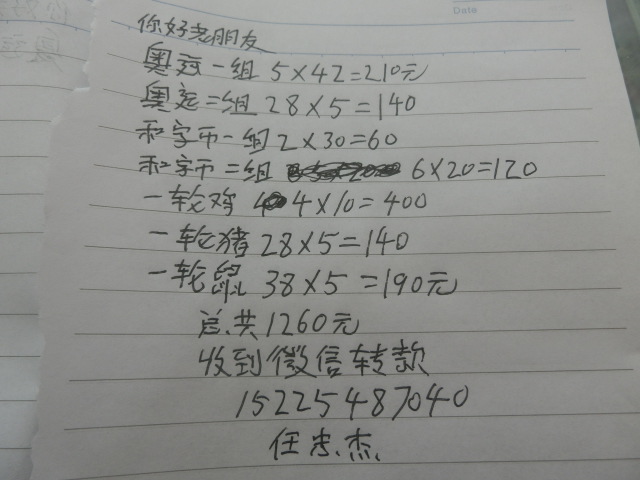 你好老朋友
奥运一组 5×42=210元
奥运二组 28×5=140
和字币一组 2×30=60
和字币二组 6×20=120
一轮鸡 4×10=400
一轮猪 28×5=140
一轮鼠 38×5=190元
总共1260元
收到微信转款
15225487040
任忠杰
Date